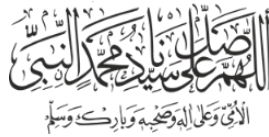 اللهم صل على سيدنا محمد النبي
الأمي وعلى آله وصحبه وبارك وسلم